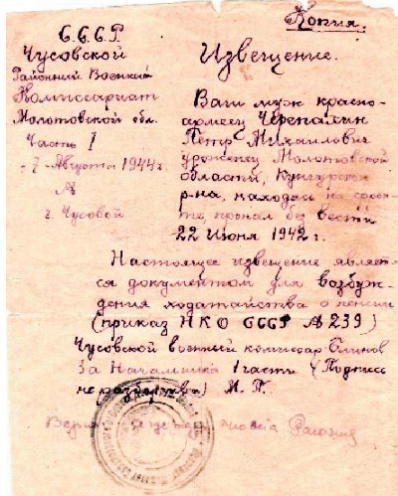 Копия.
С.С.С.Р.
Чусовской
Районный Военный
Комиссариат
Молотовской обл.
Часть I
7 Августа 1944 г.
№
г. Чусовой
Извещение.
Ваш муж красно-
армеец Черепахин
Петр Михайлович
уроженец Молотовской
области, Кунгурского
р-на, находясь на
пропал без вести
22 Июня 1942 г.
Настоящее извещение являет-
ся документом для возбуж-
дения ходатайства о пенсии
(приказ НКО СССР № 239)
Чусовской военный комиссар
За Начальника 1 части (Подпись
неразборчива) М. П.